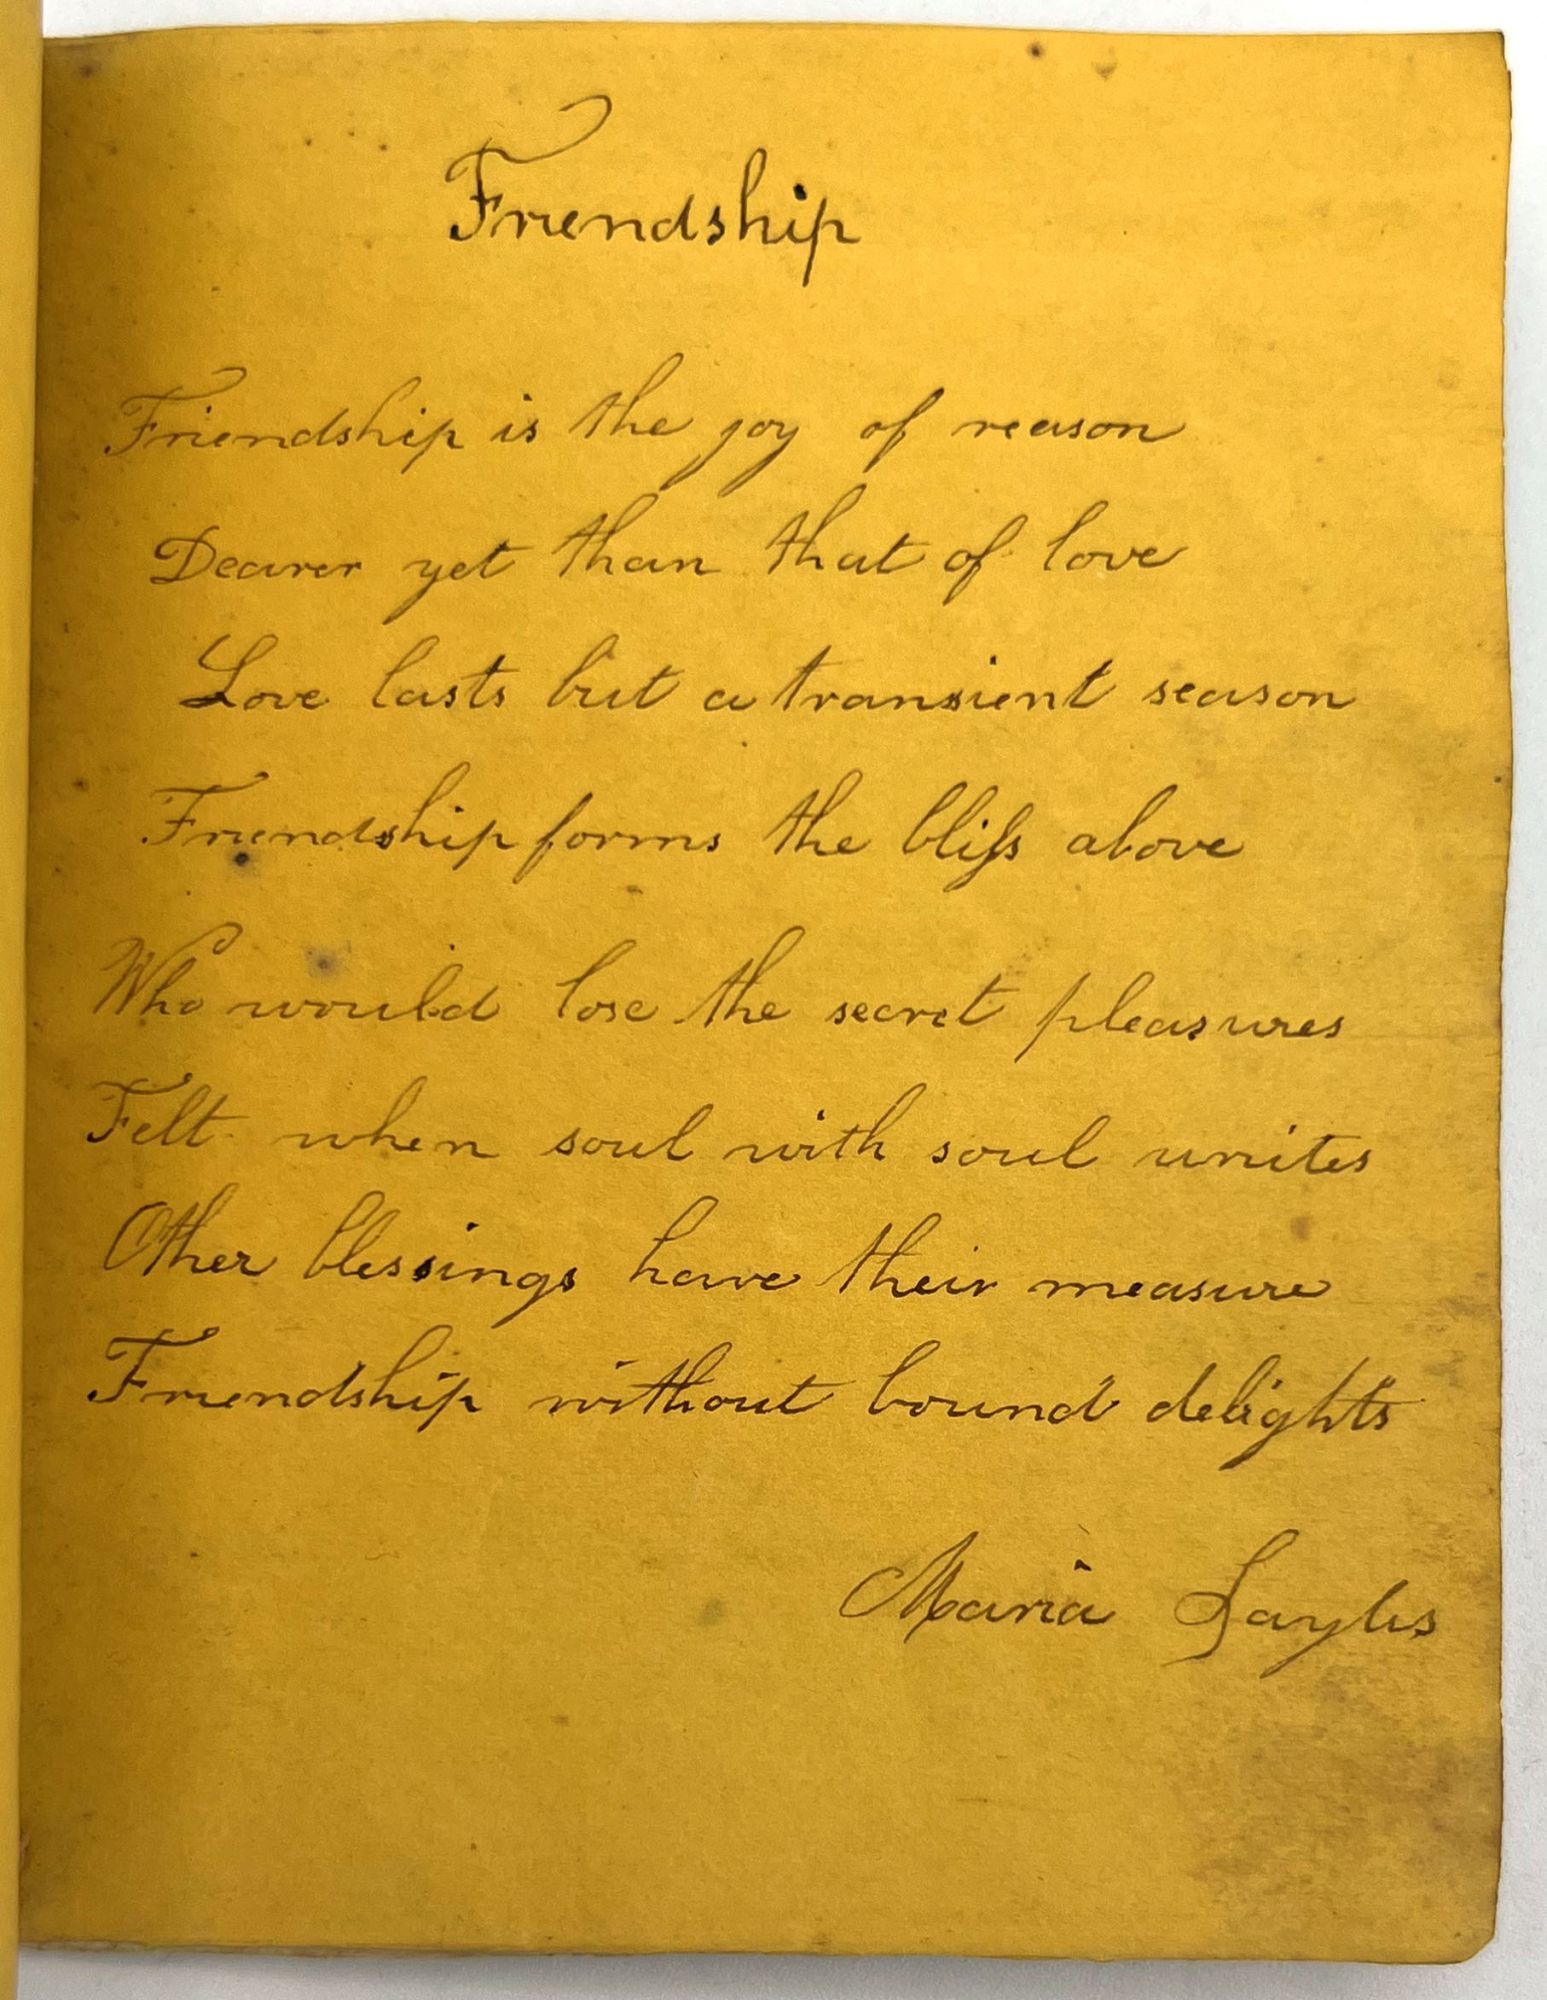 Friendship
Friendship is the joy of reason
Dearer yet than that of love
Love lasts but a transient season
Friendship forms the bliſs above
Who would lose the secret pleasures
Felt when soul with soul unites
Other blessings have their measure
Friendship without bound delights
Maria